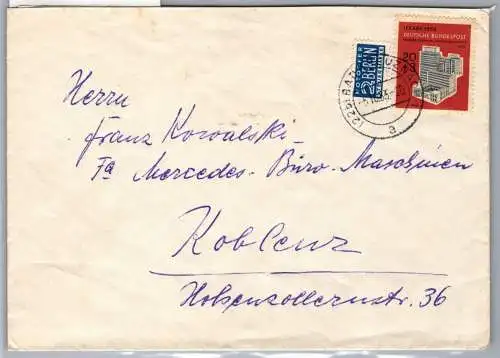 IFRABA 1953
DEUTSCHE BUNDESPOST
20
+3
NOTOPFER
2 BERLIN
STEUERMARKE
(22b) BAD
a
Herrn
Franz Kowalski
Fa Mercedes-Büro-Maschinen
Koblenz
Hohenzollernstr. 36